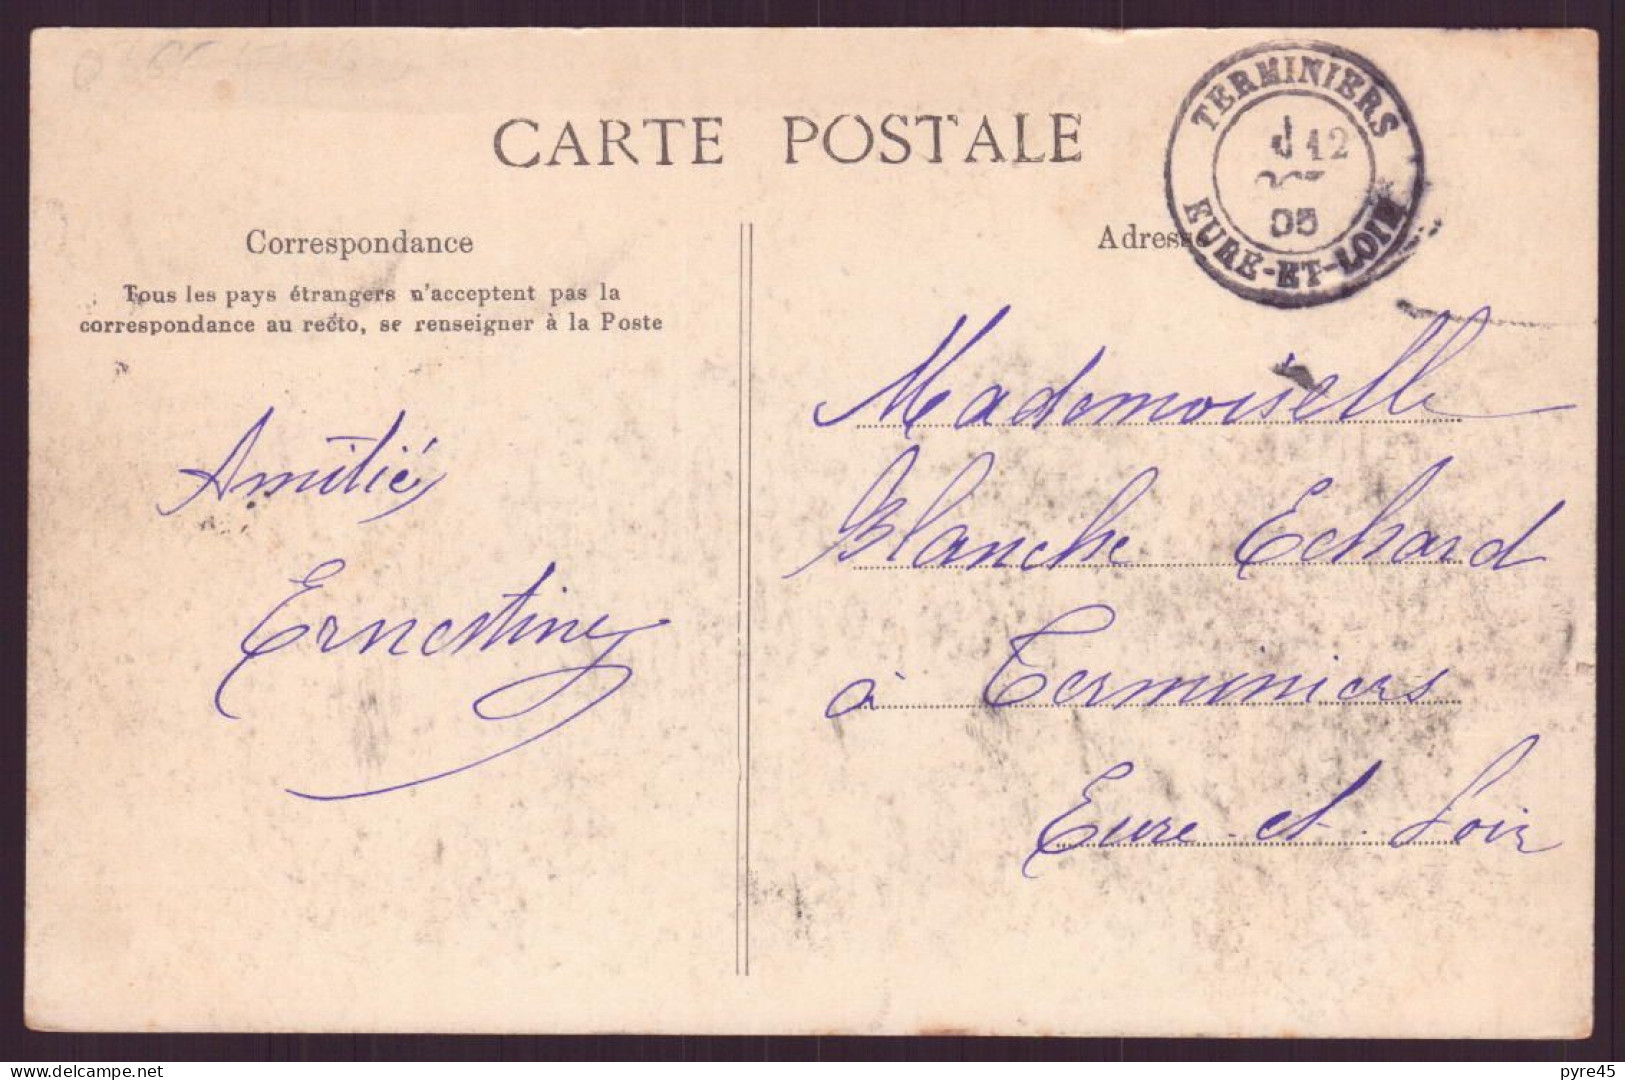 CARTE POSTALE
TERMINIERS
12
OCT
05
EURE-ET-LOIR
Correspondance
Adresse
Tous les pays étrangers n'acceptent pas la
correspondance au recto, se renseigner à la Poste
Amitié
Ernestine
Mademoiselle
Blanche Echard
à Terminiers
Eure-et-Loir
pyre45